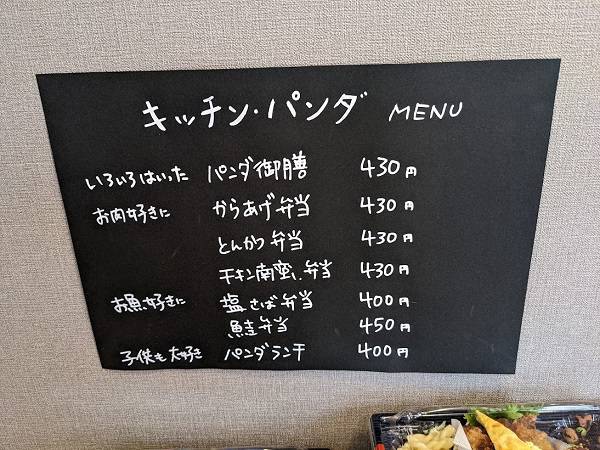 キッチン・パンダ MENU
いろいろはいった パンダ御膳 430円
お肉好きに からあげ弁当 430円
とんかつ弁当 430円
チキン南蛮弁当 430円
お魚好きに 塩さば弁当 400円
鮭弁当 450円
子供も大好き パンダランチ 400円